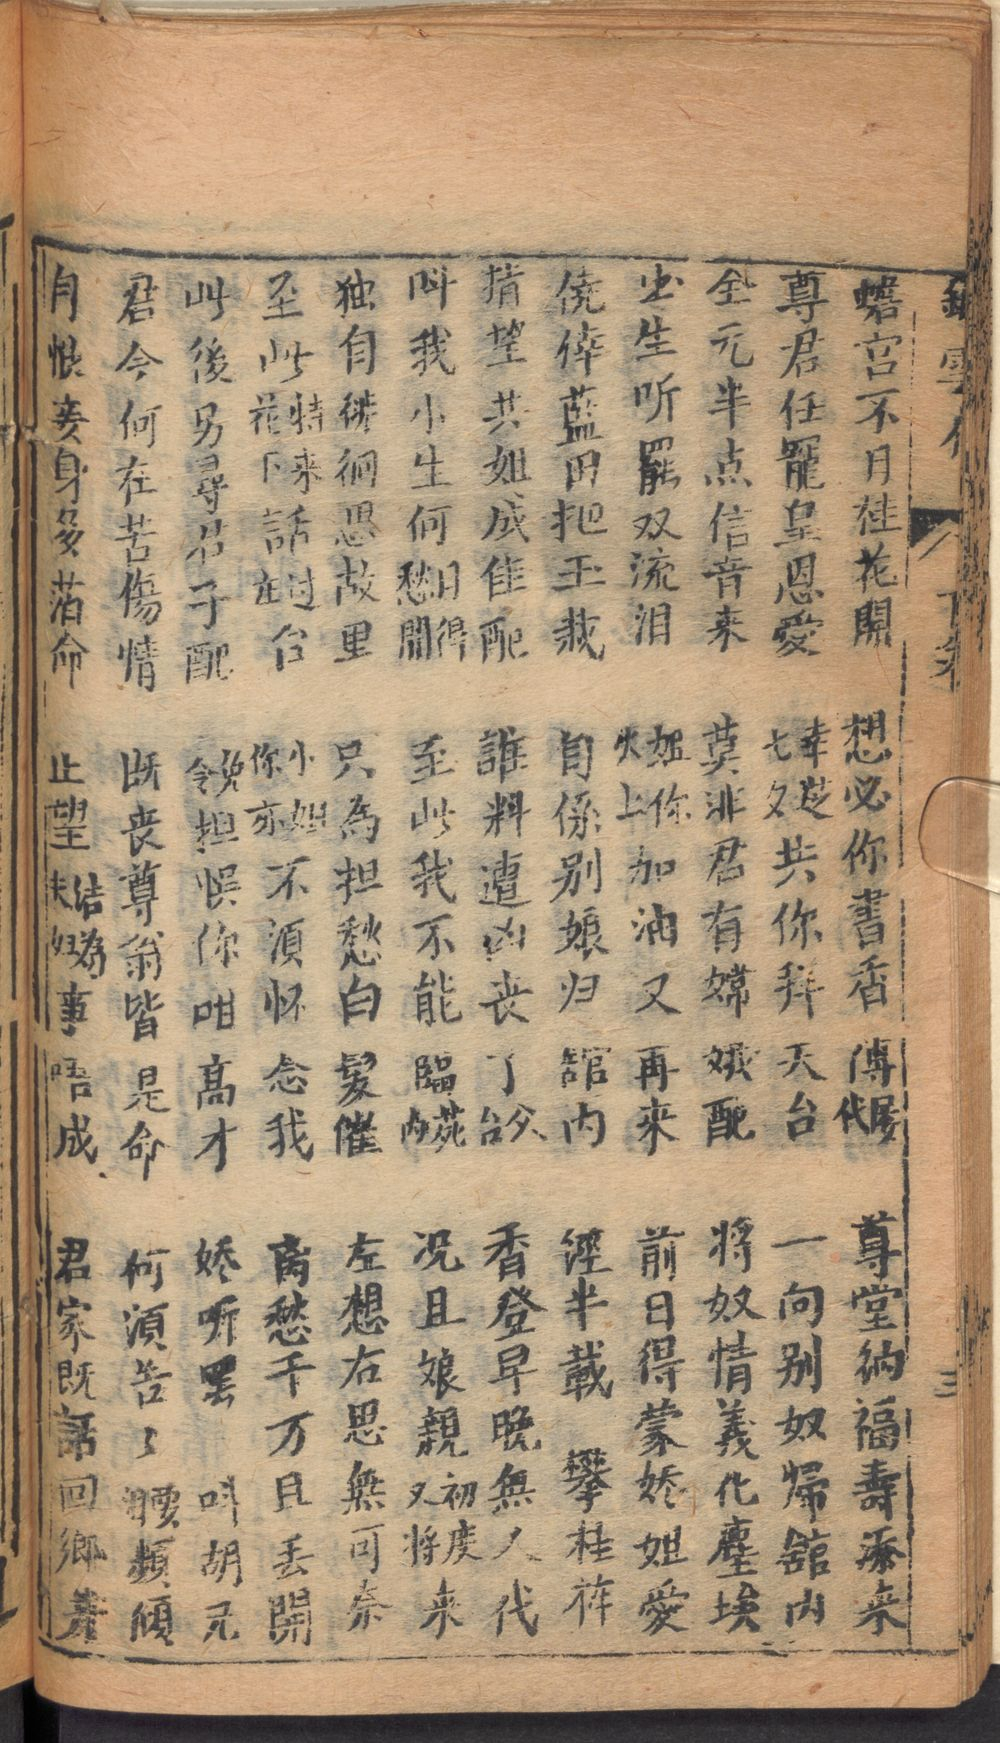 蟾宮不月桂花開 想必你書香傳後代 尊堂納福壽添來
尊君任罷皇恩愛 七夕幸逆共你拜天台 一向别奴歸舘内
全元半点信音來 莫非君有嫦娥配 將奴情義化塵埃
出生听罷双流泪 火上姐你加油又再來 前日得蒙嬌姐愛
僥倖藍田把玉栽 自係别娘归舘内 經半載 攀桂裤
指望共姐成佳配 誰料遭凶丧了父台 香登早晚無人代
呌我小生何日得愁開 至此我不能臨苑内 况且娘親初度又將来
独自徘徊思故里 只為担愁白髮催 左想右思無可奈
至此特来花下話过在台 小姐你亦不湏怀念我 离愁千万且丢開
此後另尋君子配 免令担悮你咁高才 嬌听罢 呌胡兄
君今何在苦傷情 既丧尊翁皆是命 何湏告〻腰頻傾
自恨妾身多薄命 止望結為夫妇事唔成 君家既話回鄉井
下卷
三